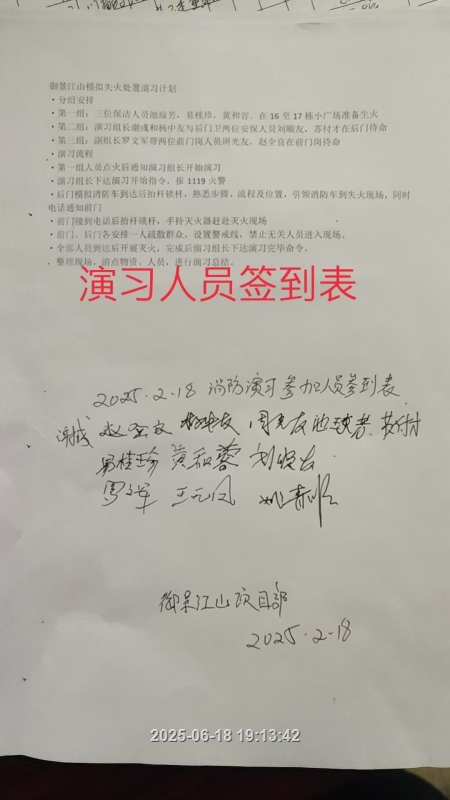 御景江山模拟失火处置演习计划
·分组安排
·第一组：三位保洁人员池琼芳，易桂珍，黄和容。在 16 至 17 栋小广场准备生火
·第二组：演习组长谢彧和杨中友与后门卫两位安保人员刘顺友，苏付才在后门待命
·第三组：副组长罗文军带两位前门岗人员周光友，赵全良在前门岗待命
·演习流程
·第一组人员点火后通知演习组长开始演习
·演习组长下达演习开始指令，报 1119 火警
·后门模拟消防车到达后抬杆锁杆，熟悉步骤、流程及位置，引领消防车到失火现场，同时
电话通知前门
·前门接到电话后抬杆锁杆，手持灭火器赶赴灭火现场
·前门、后门各安排一人疏散群众，设置警戒线，禁止无关人员进入现场。
·全部人员到达后开展灭火，完成后演习组长下达演习完毕命令。
·整理现场，清点物资、人员，进行演习总结。
演习人员签到表
2025.2-18 消防演习参加人员签到表
周光友
易桂珍 黄和蓉 刘顺友
罗文军 王元凤
御景江山项目部
2025.2-18
2025-06-18 19:13:42